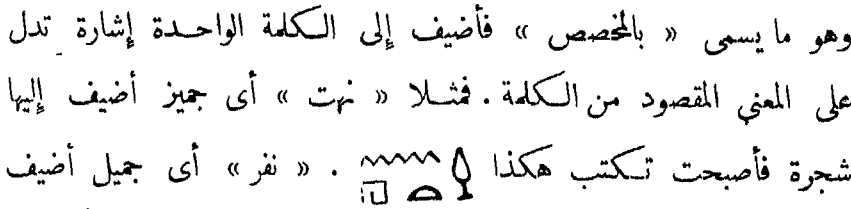 وهو ما يسمى « بالمخصص » فأضيف إلى الكلمة الواحدة إشارة تدل
على المعنى المقصود من الكلمة . فمثلا « نهت » أى جميز أضيف إليها
شجرة فأصبحت تكتب هكذا 𓈖𓉔𓏏𓆭 . « نفر » أى جميل أضيف